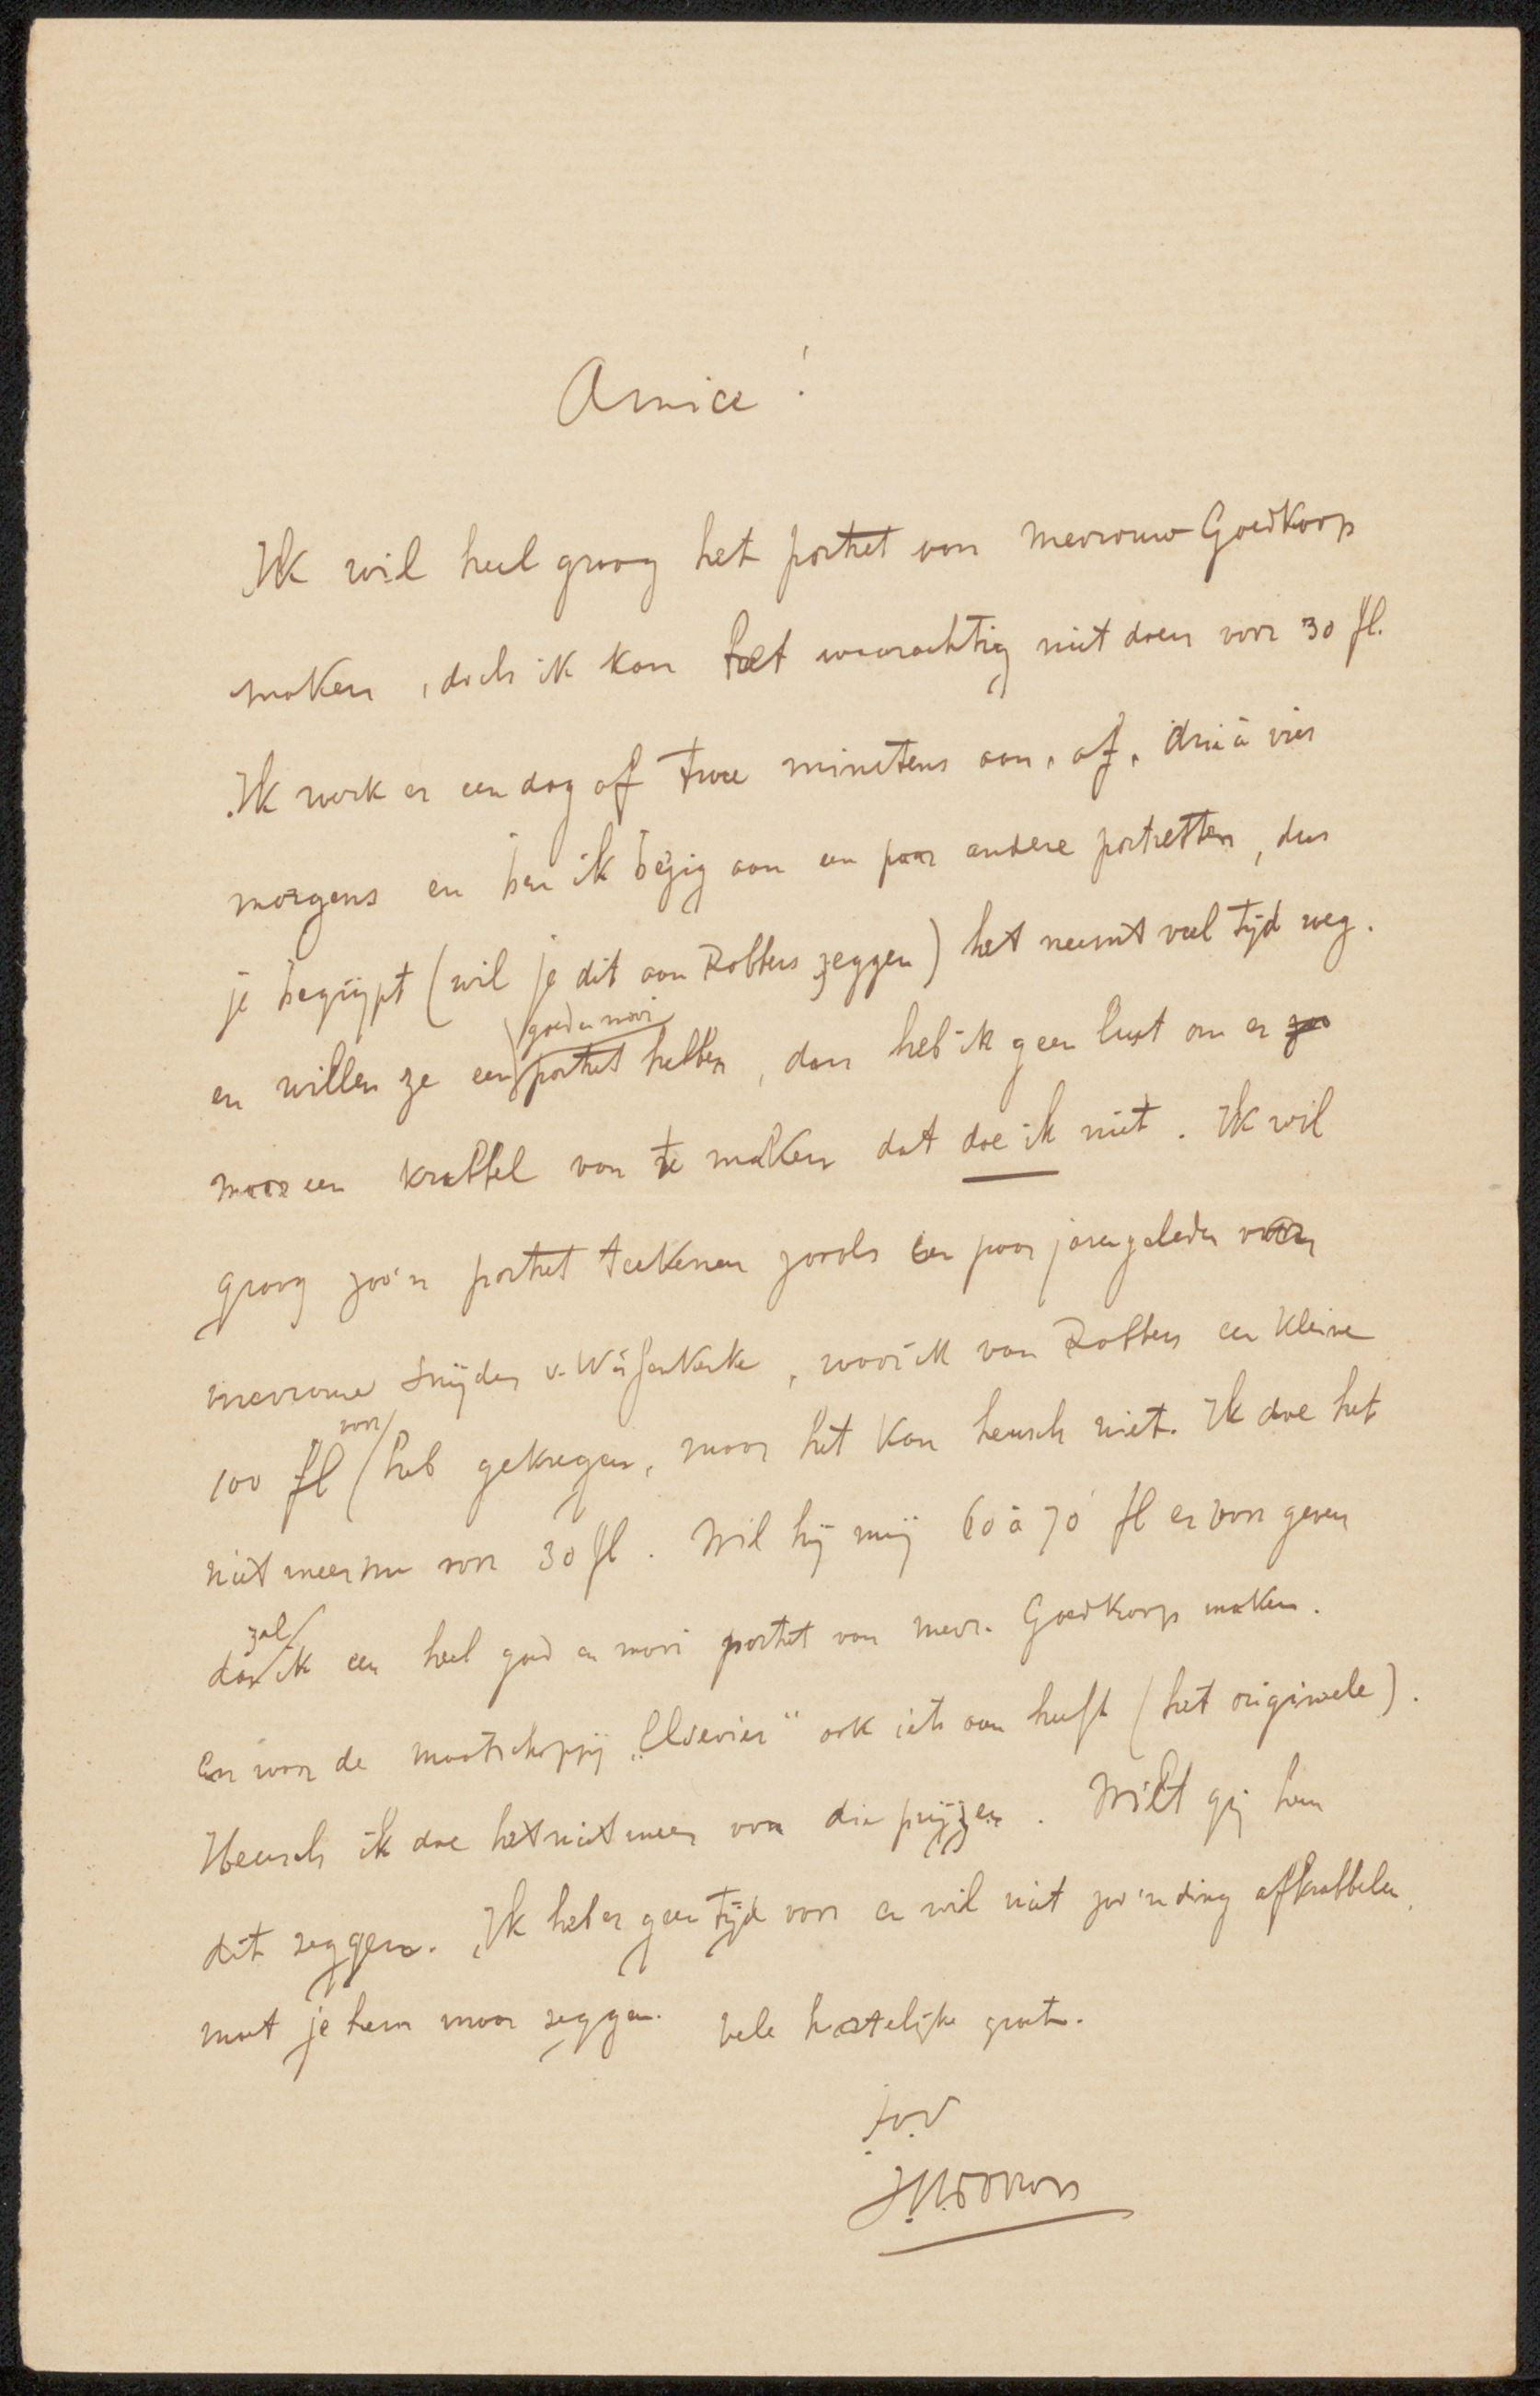 Amice!
Ik wil heel graag het portret van mevrouw Goedkoop
maken, doch ik kan het waarachtig niet doen voor 30 fl.
Ik werk er een dag of twee minstens aan, of, drie à vier
morgens en ben ik bezig aan een paar andere portretten, dus
je begrijpt (wil je dit aan Robbers zeggen) het neemt veel tijd weg.
en willen ze een goed en mooi portret hebben, dan heb ik geen lust om er zoo
maar een krabbel van te maken dat doe ik niet. Ik wil
graag zoo'n portret teekenen zooals een paar jaren geleden van
mevrouw Snijder v. Wissenkerke, waar ik van Robbers een kleine
100 fl voor heb gekregen, maar het kan heusch niet. Ik doe het
niet meer nu voor 30 fl. Wil hij mij 60 à 70 fl er voor geven
dan zal ik een heel goed en mooi portret van mevr. Goedkoop maken.
En waar de maatschappij „Elsevier" ook iets aan heeft (het origineele).
Heusch ik doe het niet meer voor die prijzen. Wilt gij hem
dit zeggen. Ik heb er geen tijd voor en wil niet zoo'n ding afkrabbelen,
moet je hem maar zeggen. Vele hartelijke groeten.
t.v.
HHaverman